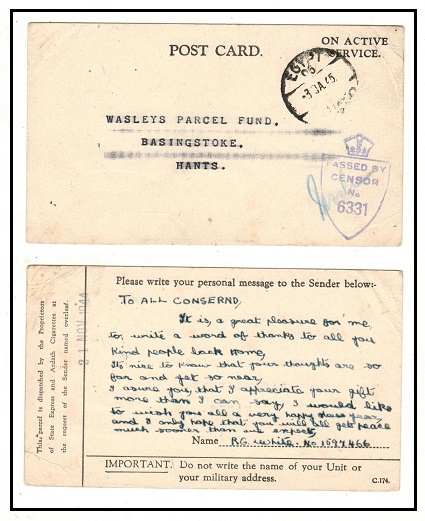 POST CARD.
ON ACTIVE
SERVICE.
EGYPT
-3 JA.45
WASLEYS PARCEL FUND.
BASINGSTOKE.
HANTS.
PASSED BY
CENSOR
No
6331
This parcel is dispatched by the Proprietors
of State Express and Ardath Cigarettes at
the request of the Sender named overleaf.
21 NOV 1944
Please write your personal message to the Sender below:-
To ALL CONSERND,
It is, a great pleasure for me
to, write a word of thanks to all you
Kind people back Home,
Its nice to know that your thoughts are so
far and yet so near,
I asure you, that I appreciate your gift
more than I can say, I would like
to wish you all a very happy New year
and I only hope that you will all get peace
much sooner than we expect,
Name R.G. White. No 1597466
IMPORTANT. Do not write the name of your Unit or
your military address.
C.174.